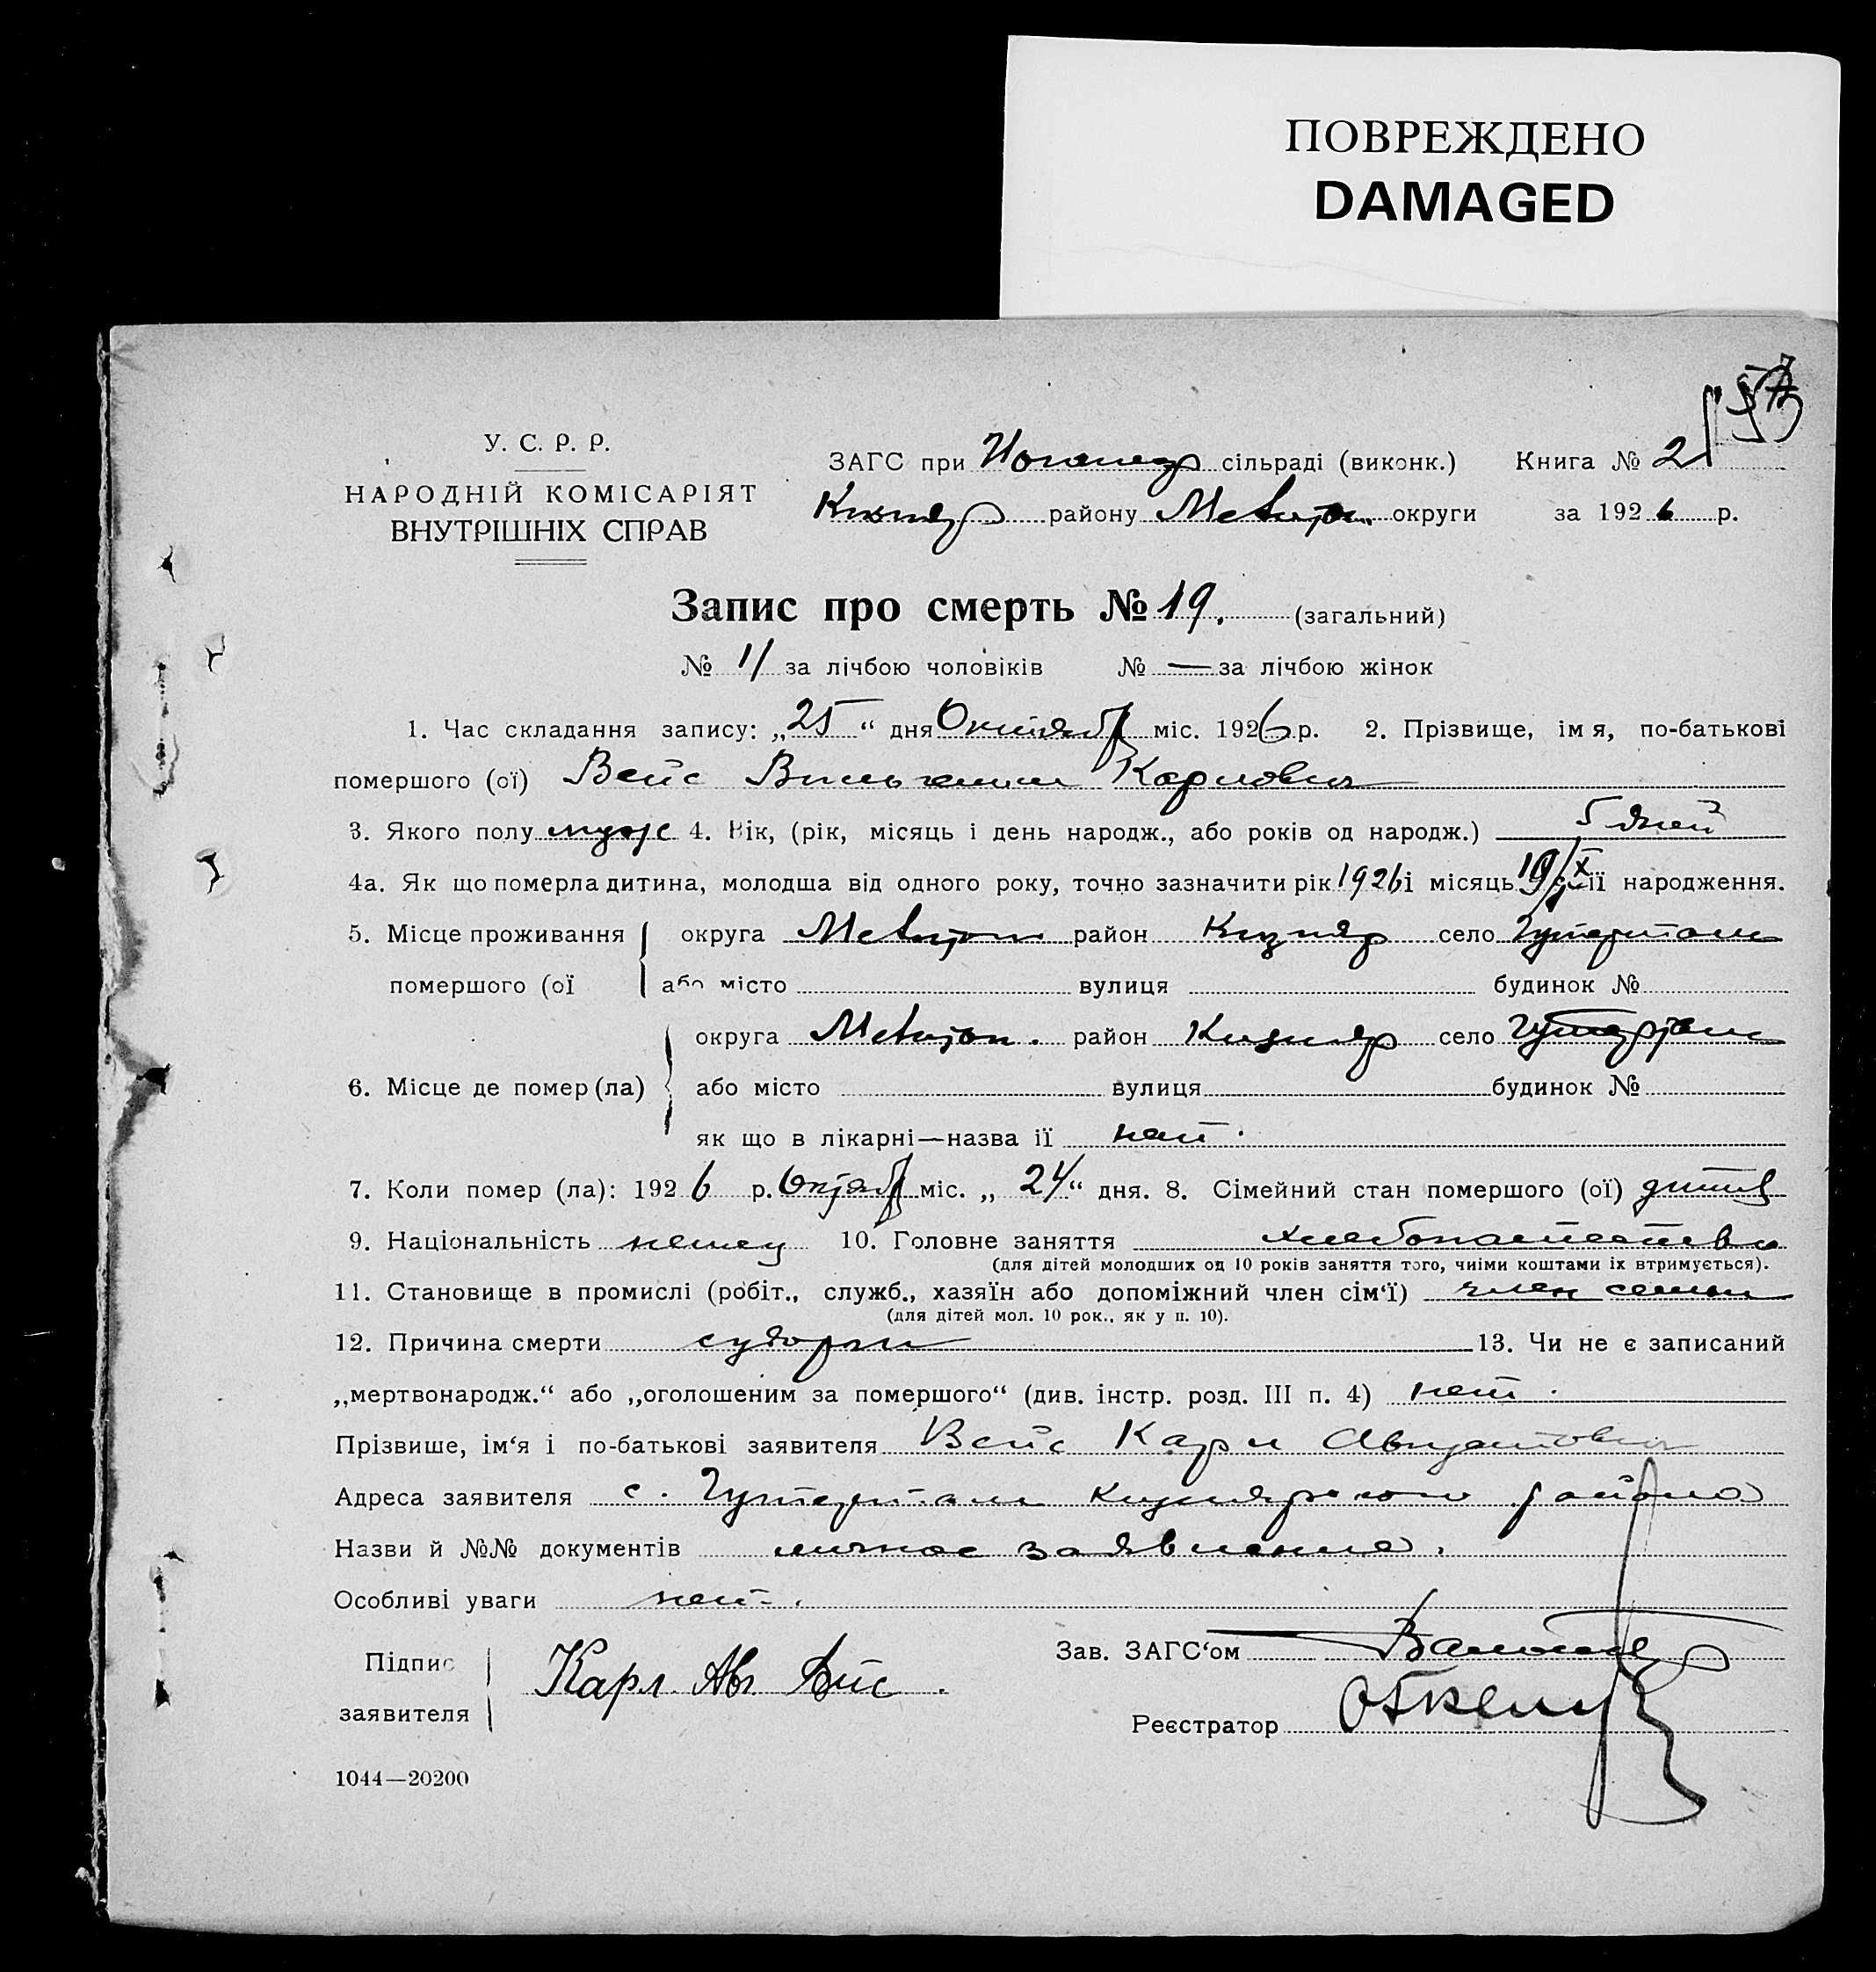 ПОВРЕЖДЕНО
DAMAGED
У. С. Р. Р.
НАРОДНІЙ КОМІСАРІЯТ
ВНУТРІШНІХ СПРАВ
ЗАГС при сільраді (виконк.) Книга № 2
району Мелитоп. округи за 1926 р.
Запис про смерть № 19. (загальний)
№ 11 за лічбою чоловіків № — за лічбою жінок
1. Час складання запису: „25“ дня Октяб міс. 1926 р. 2. Прізвище, ім я, по-батькові
помершого (ої) Вейс Вильгельм Карлович
3. Якого полу муж 4. Вік, (рік, місяць і день народж., або років од народж.) 5 дней
4а. Як що померла дитина, молодша від одного року, точно зазначити рік 1926 і місяць 19/X її народження.
5. Місце проживання округа Мелитоп район Кизияр село Гутерталь
помершого (ої або місто вулиця будинок №
округа Мелитоп. район Кизияр село Гутерталь
6. Місце де помер (ла) або місто вулиця будинок №
як що в лікарні—назва ії нет.
7. Коли помер (ла): 1926 р. Октяб міс. „24“ дня. 8. Сімейний стан помершого (ої)
9. Національність немец 10. Головне заняття хлебопашество
(для дітей молодших од 10 років заняття того, чиїми коштами їх втримується).
11. Становище в промислі (робіт., служб., хазяїн або допоміжний член сім'ї) член семьи
(для дітей мол. 10 рок., як у п. 10).
12. Причина смерти судороги 13. Чи не є записаний
„мертвонародж.“ або „оголошеним за помершого“ (див. інстр. розд. III п. 4) нет.
Прізвише, ім'я і по-батькові заявителя Вейс Карл Августович
Адреса заявителя с. Гутерталь Кизиярского района
Назви й №№ документів личное заявление.
Особливі уваги нет.
Підпис заявителя Карл Авг. Вейс.
Зав. ЗАГС'ом
Реєстратор
1044—20200